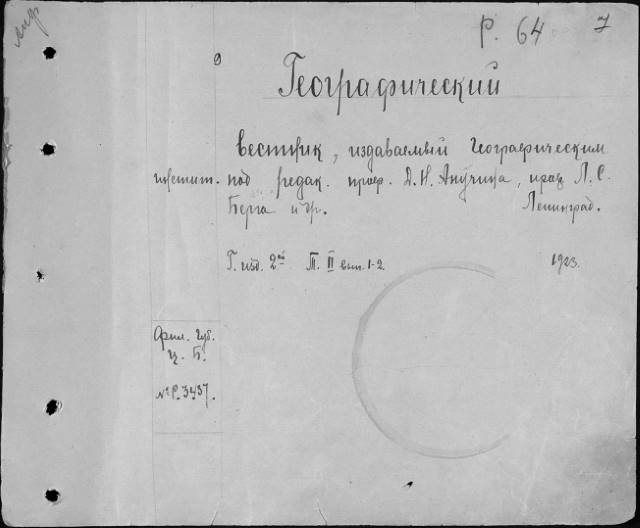 Р. 64 7
Географический
Вестник, издаваемый Географическим
инстит. под редак. проф. Д. Н. Анучина, проф. Л. С.
Берга и др. Ленинград.
Г. изд. 2ой Т. II вып. 1-2. 1923.
Фил. Губ.
Ц. Б.
№ Р. 3437.